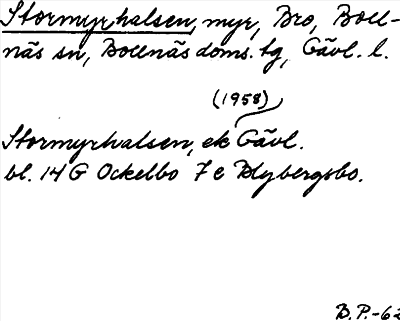 Stormyrhalsen, myr, Bro, Boll-
näs sn, Bollnäs doms. tg, Gävl. l.
(1958)
Stormyrhalsen, ek Gävl.
bl. 14 G Ockelbo 7 e Blybergsbo.
B.P.-62